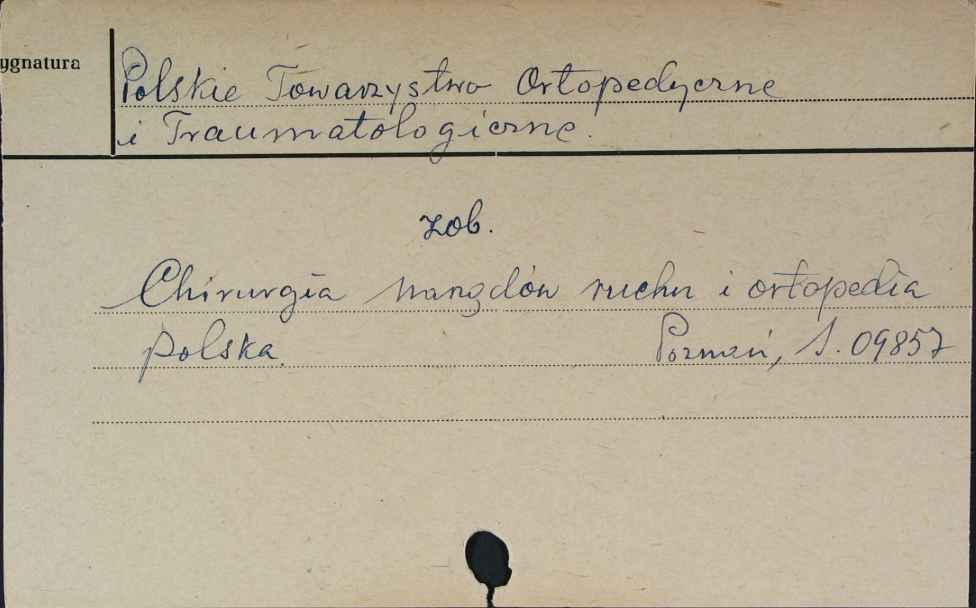 ygnatura
Polskie Towarzystwo Ortopedyczne
i Traumatologiczne.
zob.
Chirurgia narządów ruchu i ortopedia
polska. Poznań, S. 09857